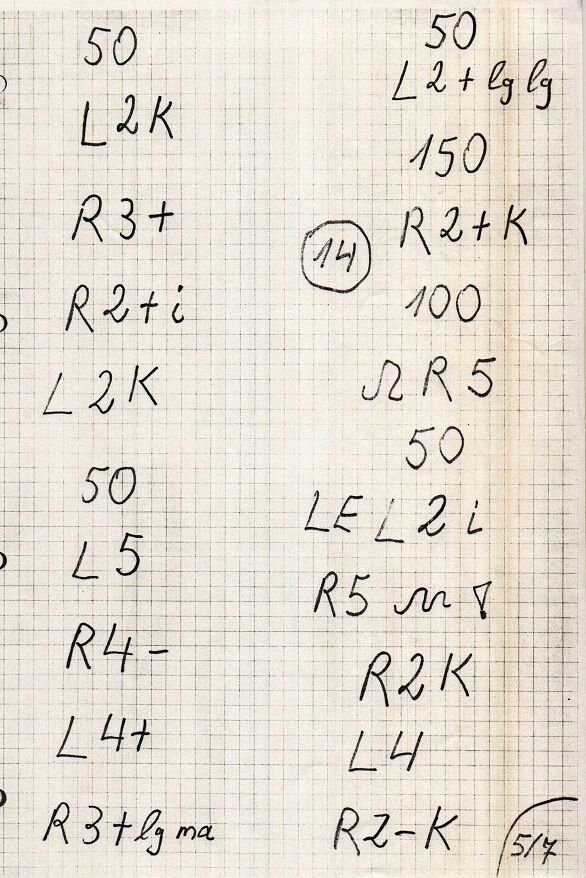 50
L2K
R3+
R2+i
L2K
50
L5
R4-
L4+
R3+lg ma
50
L2+lg lg
150
R2+K
14
100
R5
50
LE L2i
R5
R2K
L4
R2-K
5/7